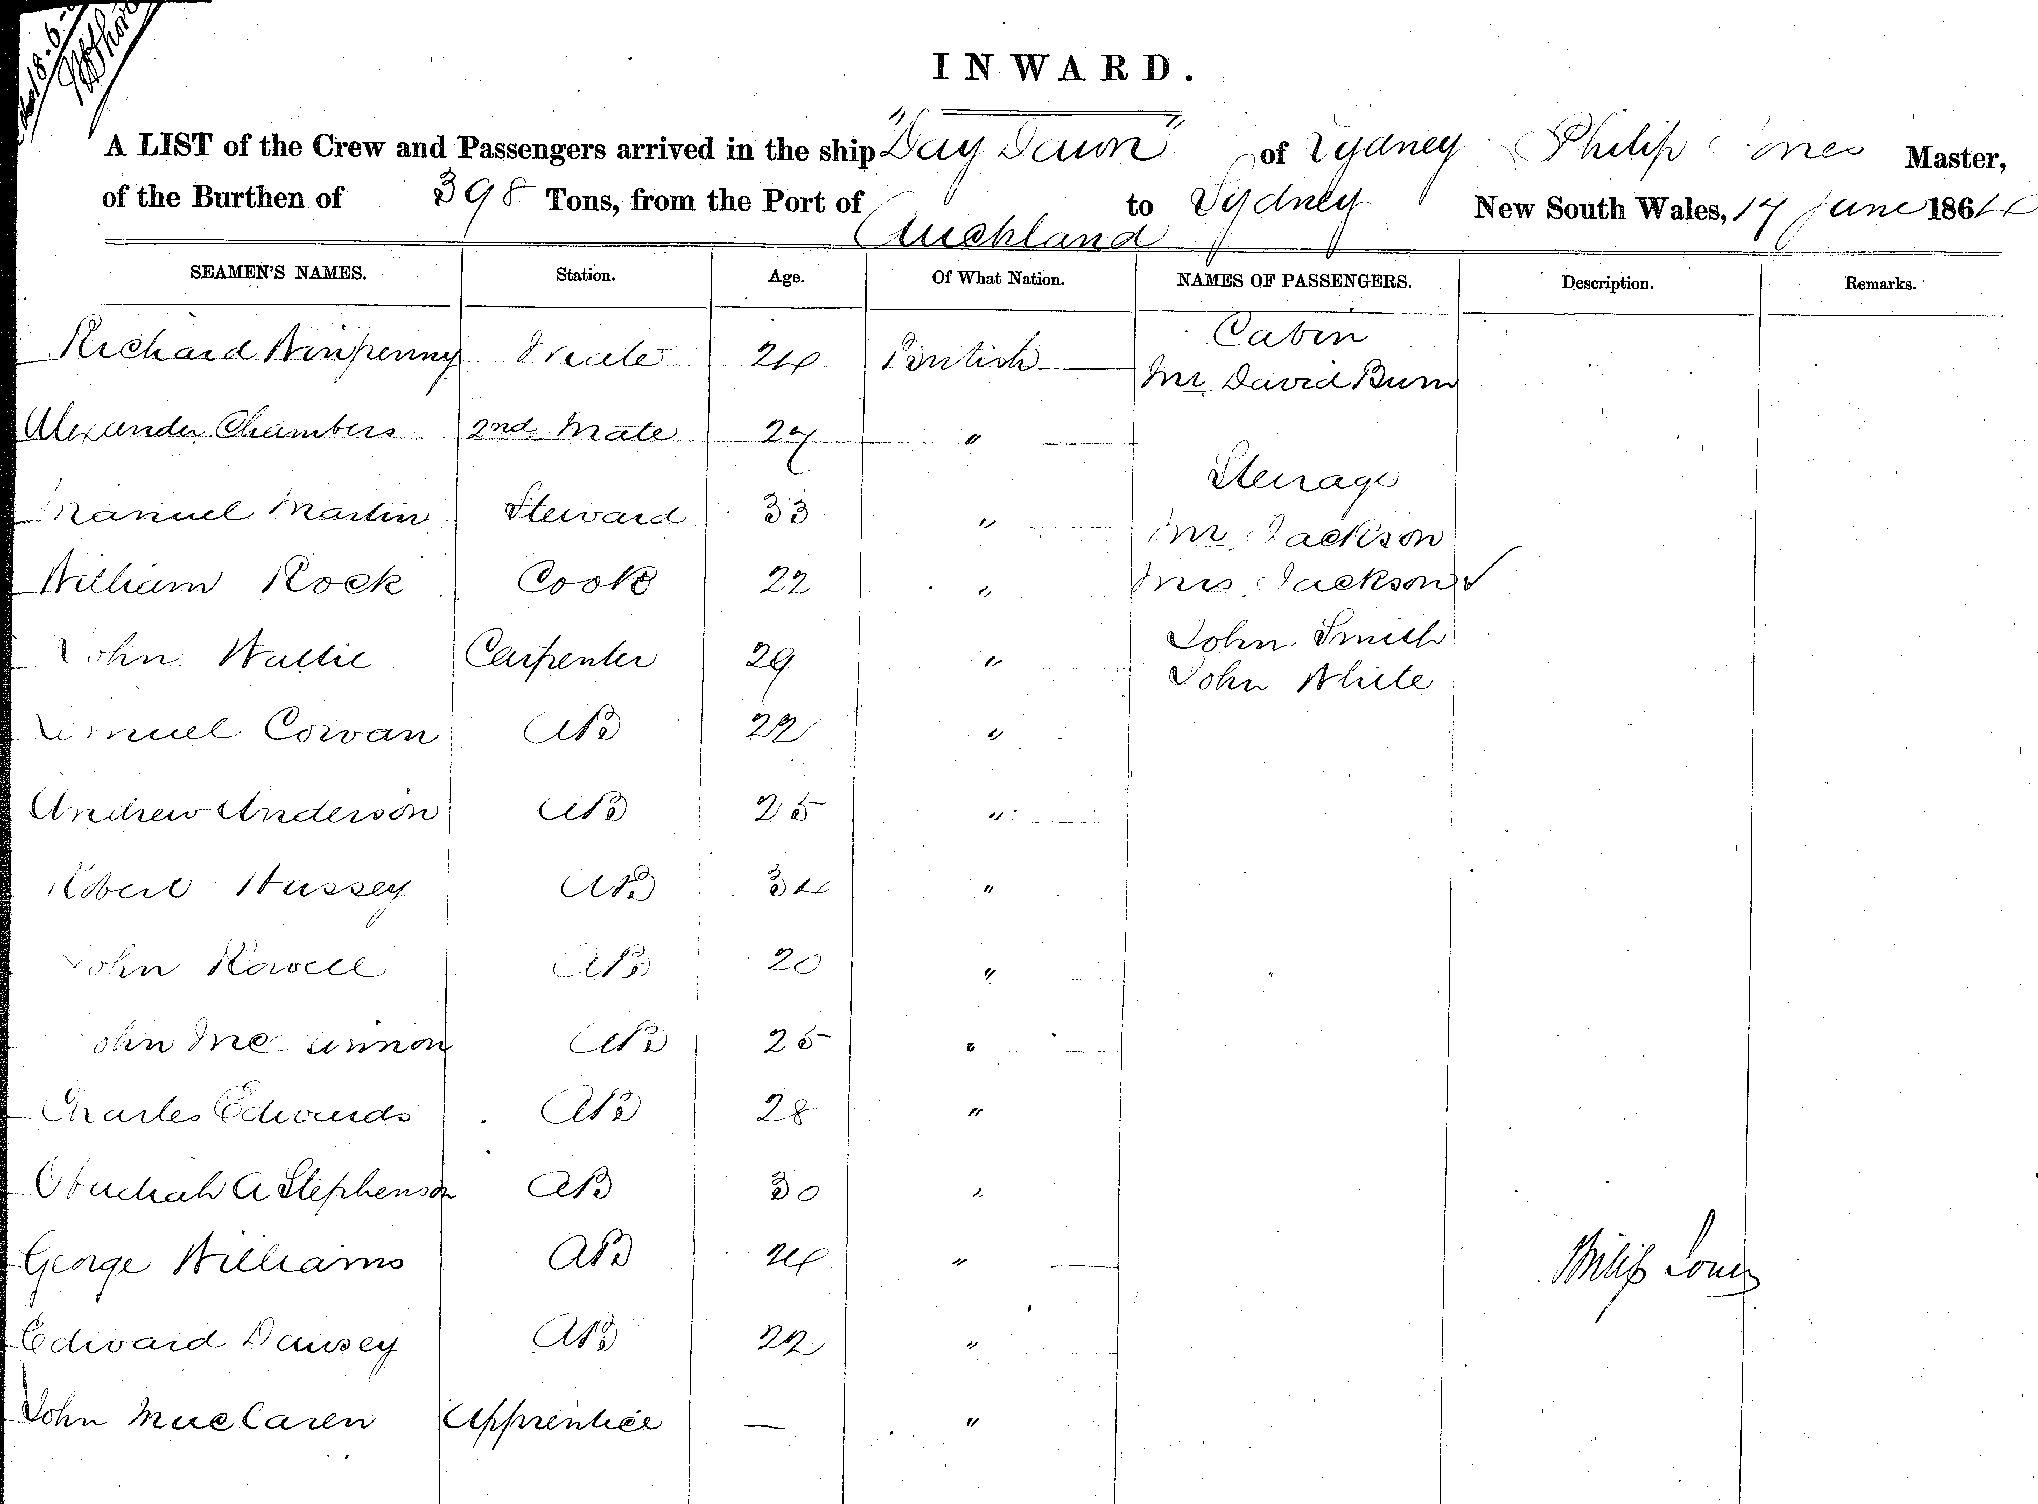 INWARD.
A LIST of the Crew and Passengers arrived in the ship "Day Dawn" of Sydney Philip Jones Master,
of the Burthen of 398 Tons, from the Port of Auckland to Sydney New South Wales, 17 June 1864
SEAMEN'S NAMES. Station. Age. Of What Nation. NAMES OF PASSENGERS. Description. Remarks.
Cabin
Richard Ninpenny Mate 24 British Mr. David Burn
Alexander Chambers 2nd Mate 27 "
Steerage
Manuel Martin Steward 33 " Mr. Jackson
William Rock Cook 22 " Mrs. Jackson ✓
John Smith
John Wattie Carpenter 29 " John White
Samuel Cowan AB 22 "
Andrew Anderson AB 25 "
Robert Hussey AB 34 "
John Rowell AB 20 "
John McKinnon AB 25 "
Charles Edwards AB 28 "
Obadiah A Stephenson AB 30 "
George Williams AB 24 "
Philip Jones
Edward Dawsey AB 22 "
John MacLaren Apprentice — "